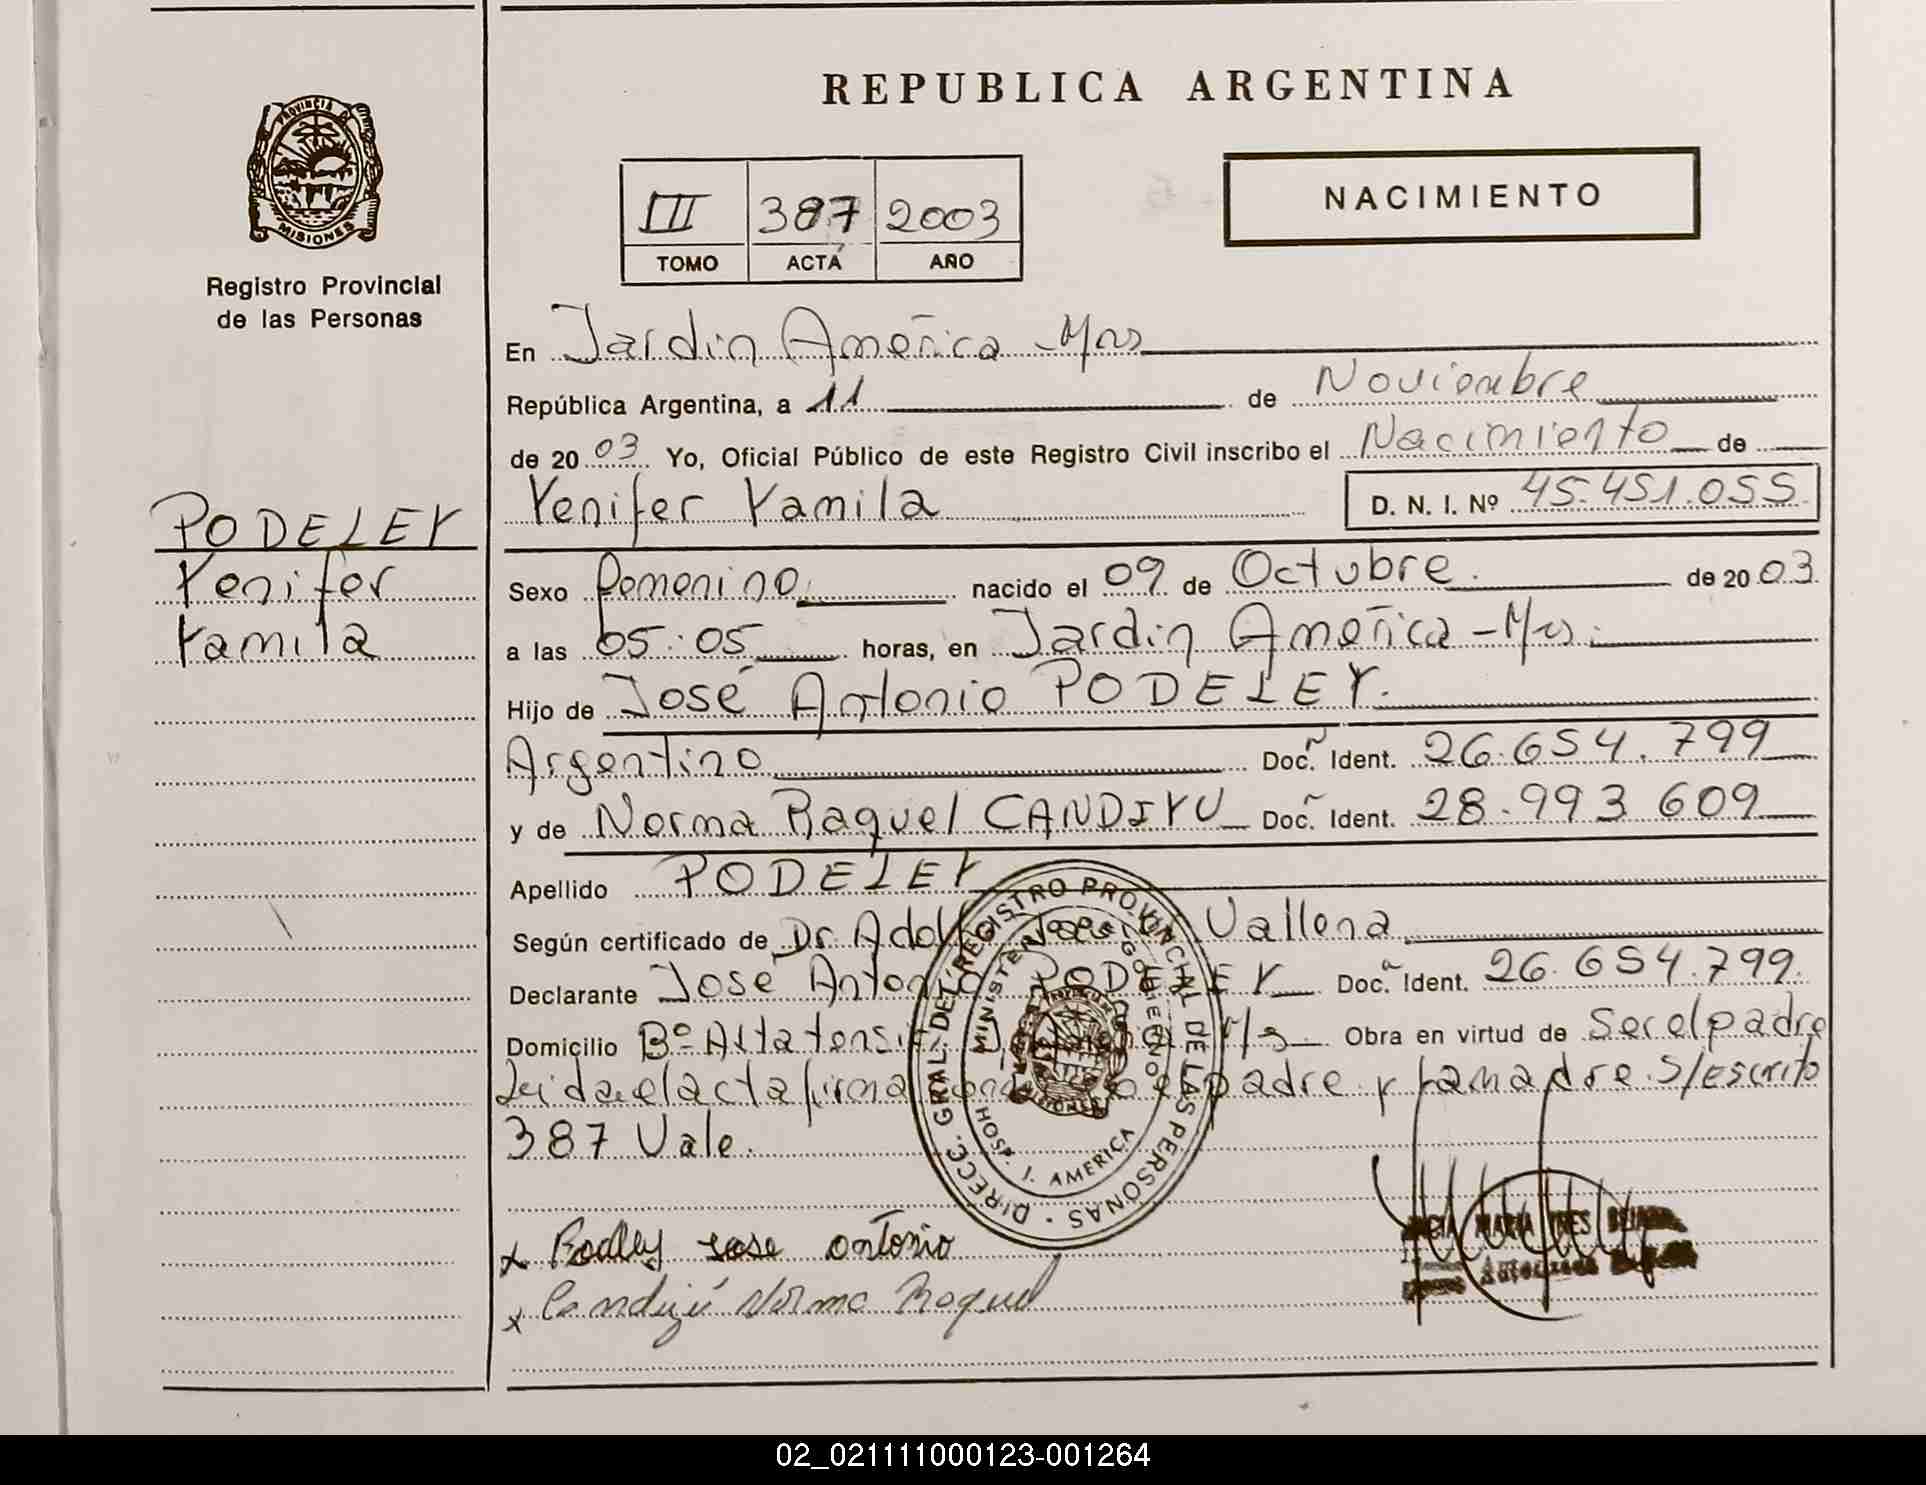 REPUBLICA ARGENTINA
PROVINCIA DE
MISIONES
Registro Provincial
de las Personas
III 387 2003
TOMO ACTA AÑO
NACIMIENTO
En Jardin América - Mns
República Argentina, a 11 de Noviembre
de 2003 Yo, Oficial Público de este Registro Civil inscribo el Nacimiento de
Yenifer Yamila D. N. I. Nº 45.451.055
PODELEY
Yenifer
Yamila
Sexo femenino nacido el 09 de Octubre de 2003
a las 05:05 horas, en Jardin América - Mns.
Hijo de José Antonio PODELEY.
Argentino Doc. Ident. 26.654.799
y de Norma Raquel CANDIYU Doc. Ident. 28.993.609
Apellido PODELEY
Según certificado de Dr. Vallena
Declarante José Antonio PODELEY Doc. Ident. 26.654.799.
Domicilio Bº Alta tensi Obra en virtud de Ser el padre
Leida el acta firma el padre y la madre. S/Escrito
387 Vale.
DIRECC. GRAL. DEL REGISTRO PROVINCIAL DE LAS PERSONAS
MINISTERIO GOBIERNO
HOSP. J. AMERICA
x Podeley Jose antonio
x Candiyú Norma Raquel
MARIA INES
Autorizada
02_021111000123-001264